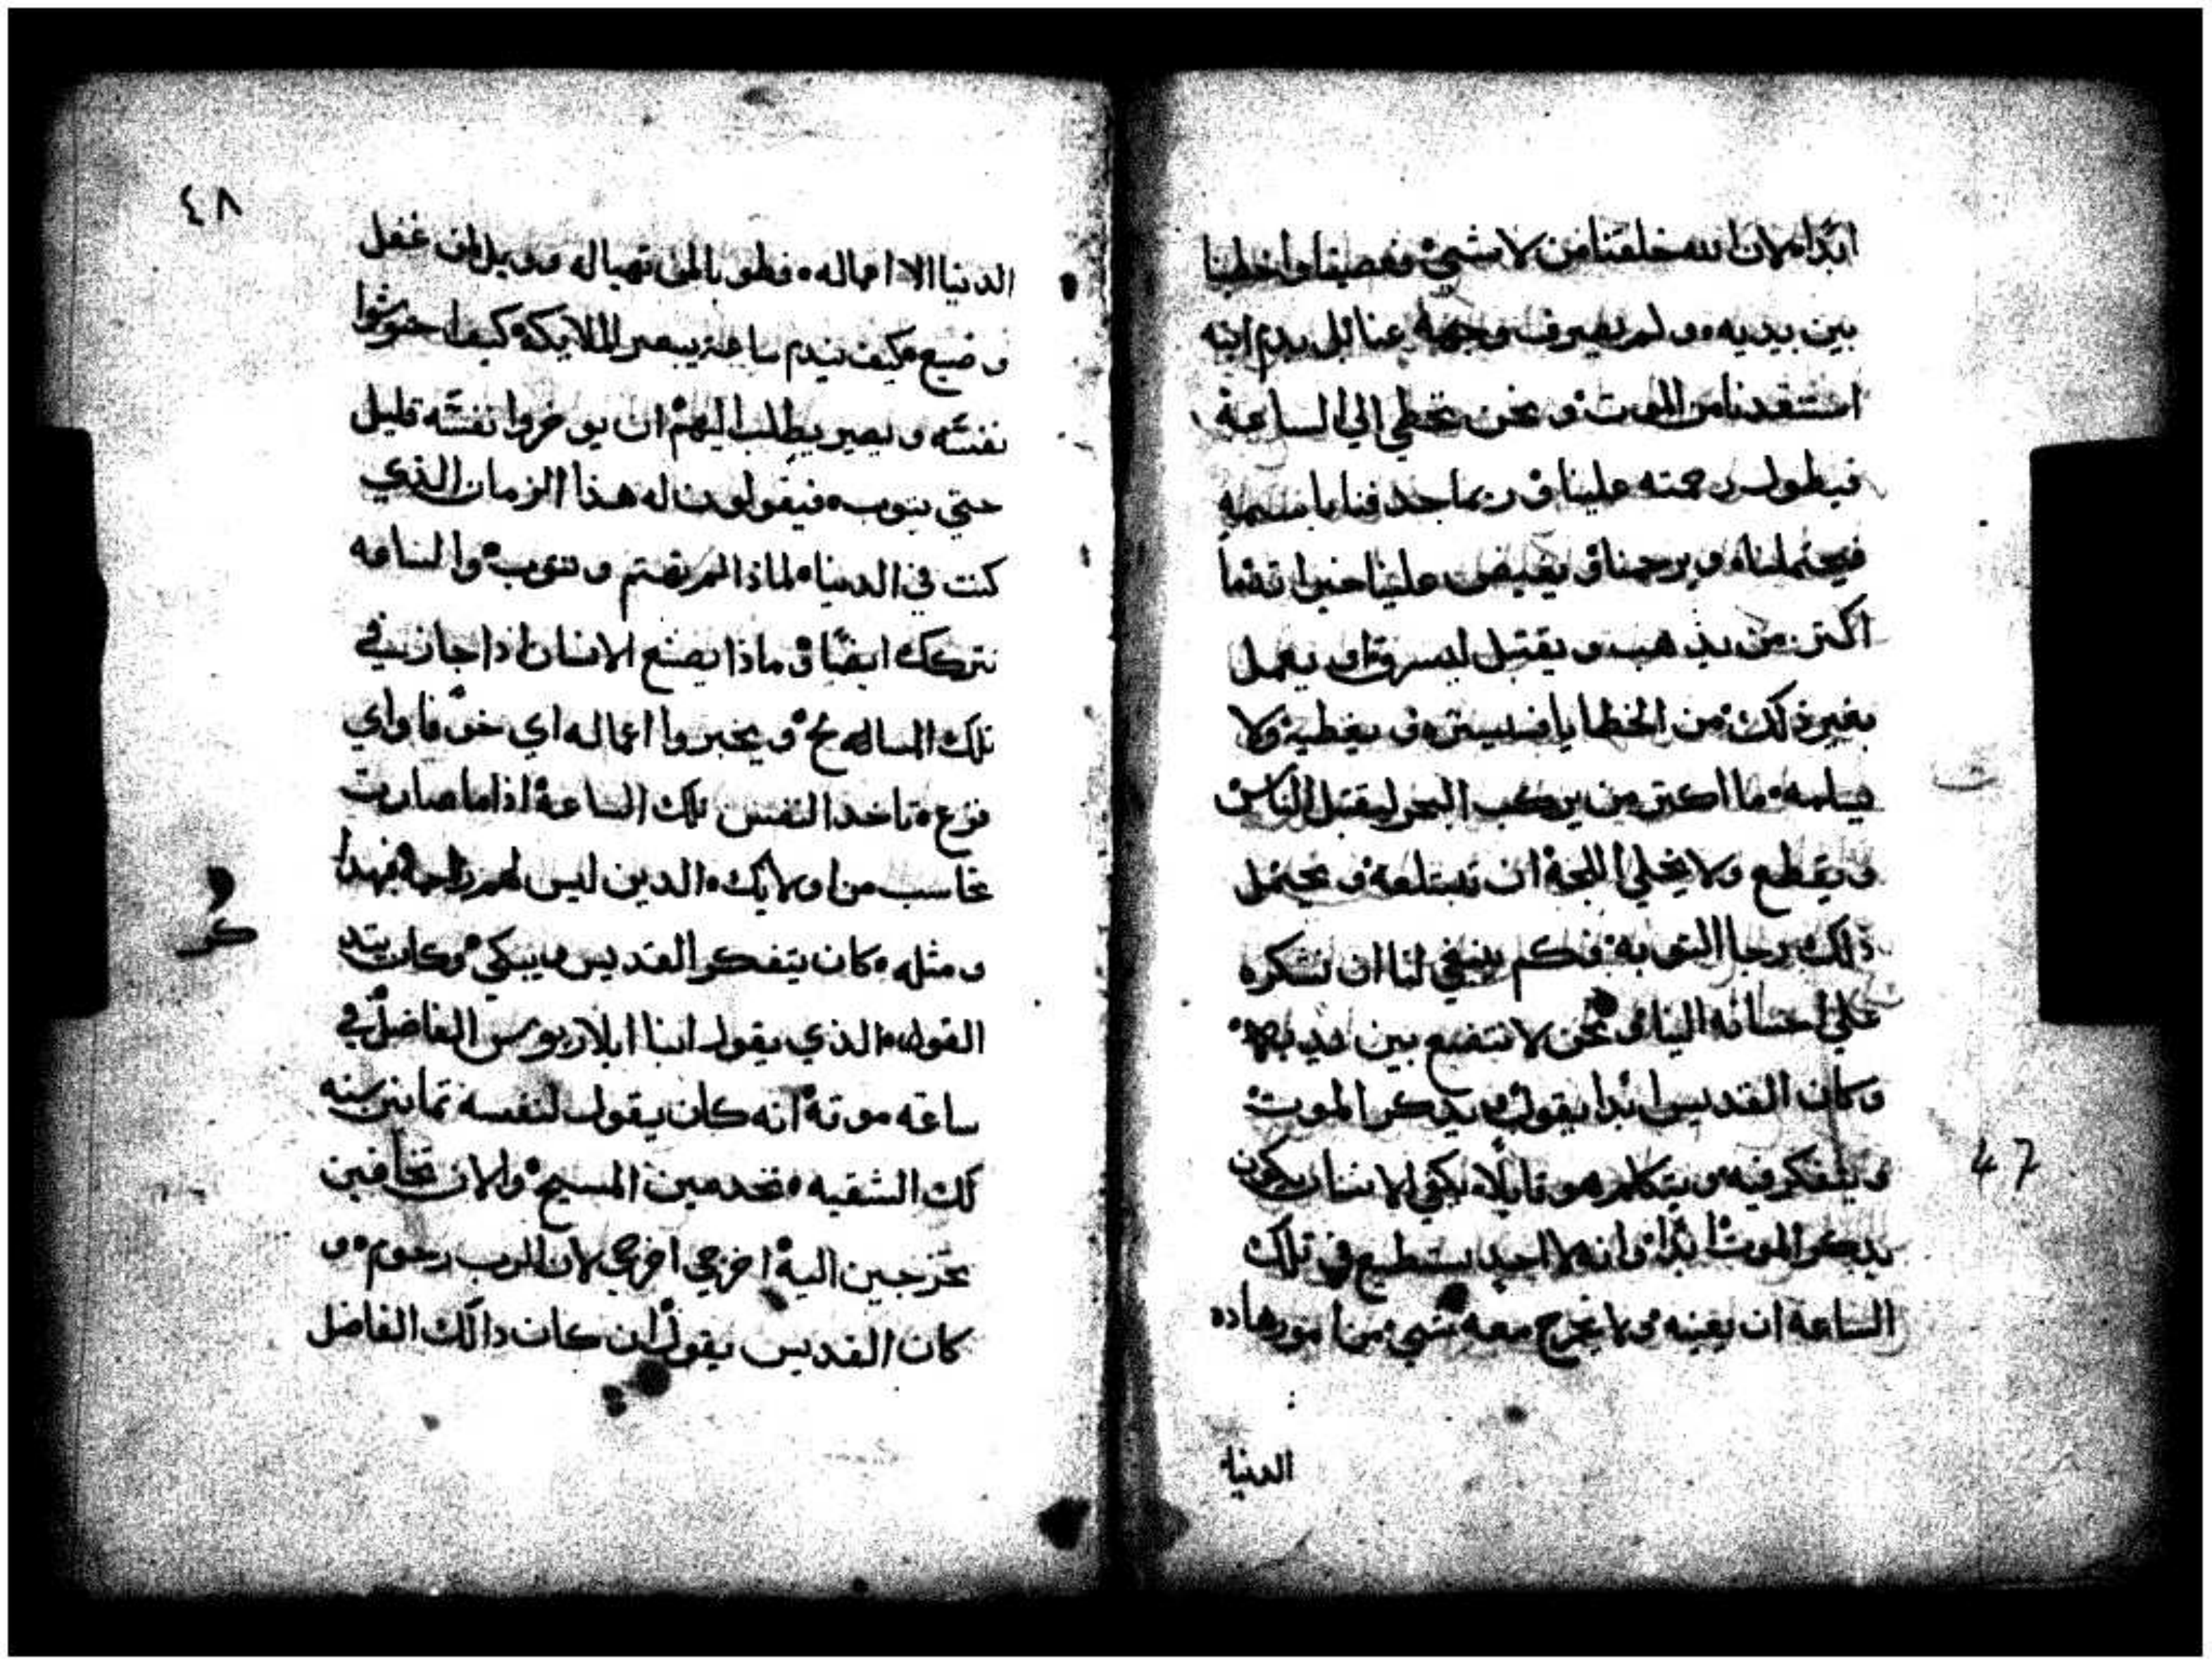 ابدا لان الله خلقنا من لا شي فعصينا واخطينا
بين يديه ولم يصرف وجهه عنا بل بدم ابنه
استنقدنا من الموت ونحن نخطي الي الساعة
فيطول رحمته علينا وربما جدفنا باسمه
فيحتملنا ويرحمنا ويفيض علينا خيراته ما
اكتر من يذهب ويقتل ليسرق او يعمل
بغير ذلك من الخطايا فيستره ويغطيه ولا
يسلمه ما اكتر من يركب البحر ليقتل الناس
ويقطع ولا يخلي اللجة ان تبتلعه ويحتمل
ذلك برجا التوبة فكم ينبغي لنا ان نشكره
علي احسانه الينا ونحن لا نتضع بين يديه
وكان القديس ابدا يقول ويدكر الموت
ويتفكر فيه ويتكلم هو قايلا يكفي الانسان يكون
يدكر الموت ابدا وانه لا احد يستطيع في تلك
الساعة ان يعينه ولا يخرج معه شي من امور هاده
الدنيا
٤٨
الدنيا الا اعماله فطوبا لمن تهيا له وويل لمن غفل
وضيع كيف يندم ساعة يبصر الملايكة كيف احتوشوا
نفسه ويصير يطلب اليهم ان يوخروا نفسه قليل
حتي يتوب فيقولون له هذا الزمان الذي
كنت في الدنيا لماذا لم تهتم وتتوب والساعه
نتركك ايضا وماذا يصنع الانسان اذا جاز في
تلك المسالح ويخبروا اعماله اي خوفا واي
فزع تاخد النفس تلك الساعة اذا ما صارت
تحاسب من اولايك الدين ليس لهم راحه فبهدا
ومثله كان يتفكر القديس ويبكي وكان يتد
القول الذي يقول انبا ايلاريوس الفاضل في
ساعه موته انه كان يقول لنفسه تمانين سنه
لك الشقيه تخدمين المسيح والان تخافين
تخرجين اليه اخرجي اخرجي لان الرب رحوم و
كان القديس يقول ان كان دالك الفاضل
كر
47